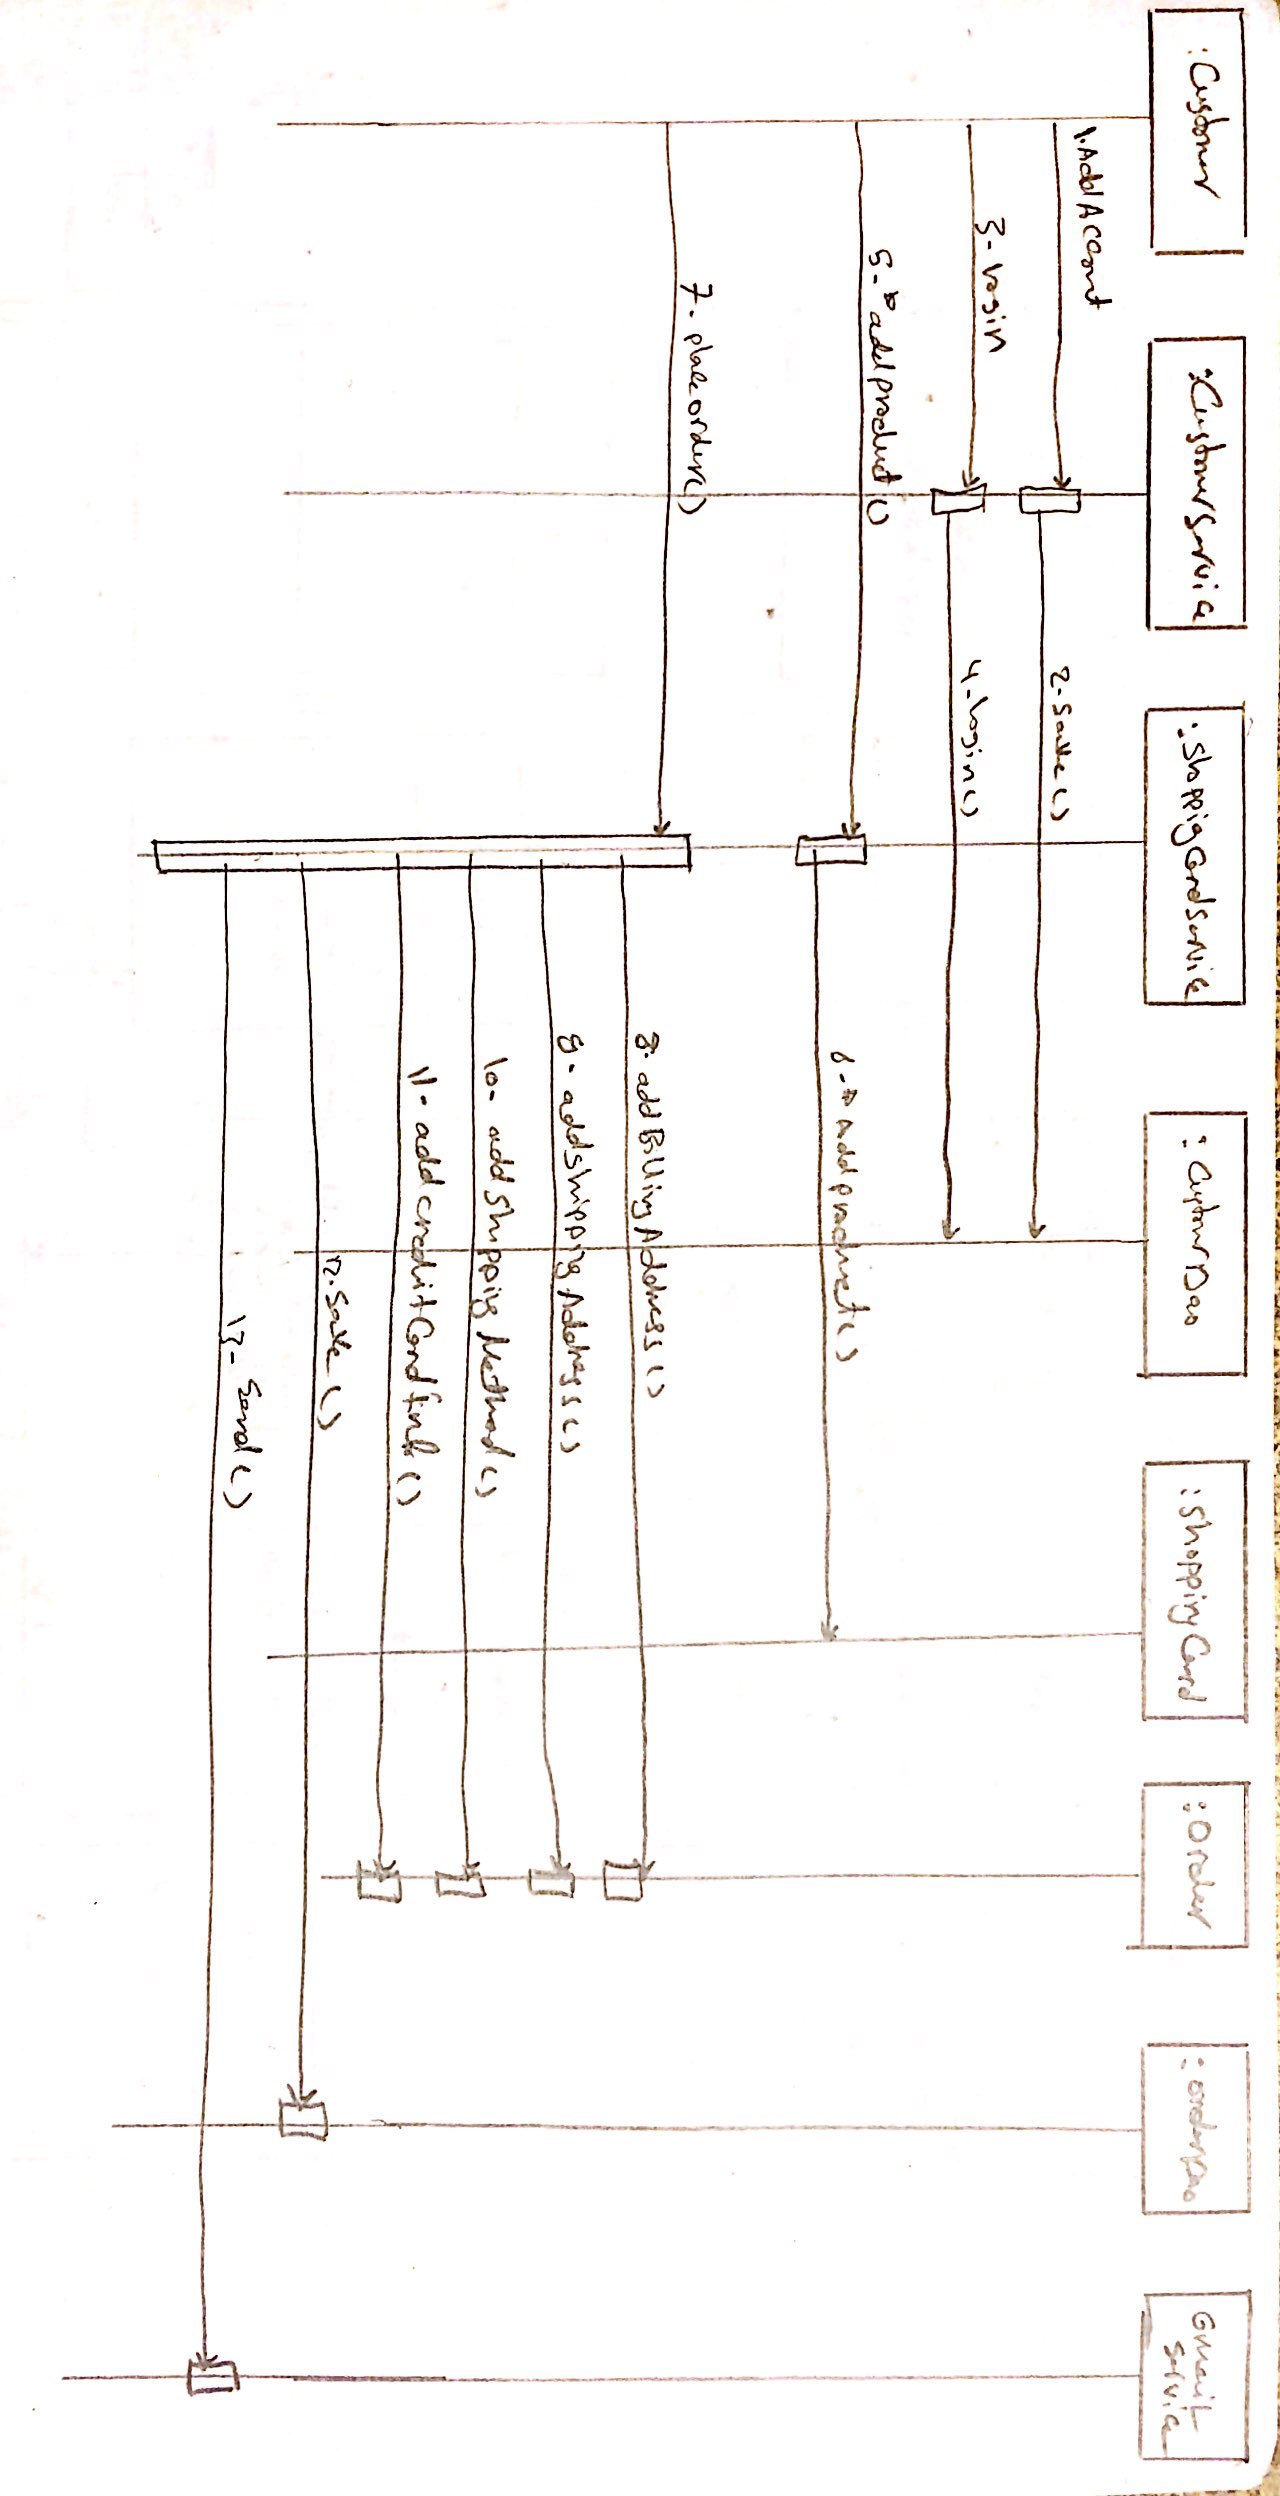 :Customer
:CustomerService
:ShoppigCardService
:CustomerDao
:ShoppingCard
:Order
:orderDao
GMail
Service
1.AddAccount
2-Save()
3-login
4-login()
5-*addproduct()
6-*Addproduct()
7-placeorder()
8-addBillingAddress()
9-addshippingAddress()
10-addShippingMethod()
11-addcreditCardInfo()
12-Save()
13-Send()